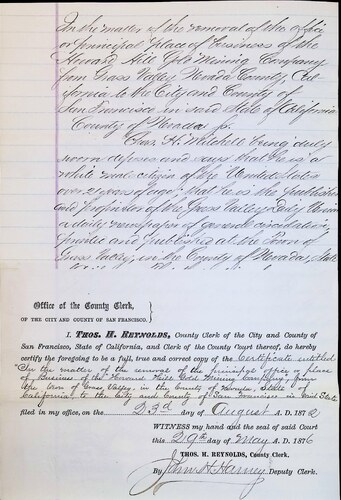 In the matter of the removal of the office
or principal place of business of the
Howard Hill Gold Mining Company
from Grass Valley Nevada County, Cal-
ifornia to the City and County of
San Francisco in said State of California
County of Nevada ss.
Chas. H. Mitchell being duly
sworn deposes and says that he is a
white male citizen of the United States
over 21 years of age; that he is the publisher
and proprietor of the Grass Valley Daily Union
a daily newspaper of general circulation,
printed and published at the Town of
Grass Valley, in the County of Nevada, State
Office of the County Clerk,
OF THE CITY AND COUNTY OF SAN FRANCISCO.
I. THOS. H. REYNOLDS, County Clerk of the City and County of
San Francisco, State of California, and Clerk of the County Court thereof, do hereby
certify the foregoing to be a full, true and correct copy of the Certificate entitled
"In the matter of the removal of the principal office or place
of Business of the Howard Hill Gold Mining Company, from
the Town of Grass Valley, in the County of Nevada, State of
California, to the City and County of San Francisco, in said State
filed in my office, on the 23d day of August A. D. 1872
WITNESS my hand and the seal of said Court
this 29th day of May A. D. 1876
THOS. H. REYNOLDS, County Clerk.
By John H. Harney Deputy Clerk.